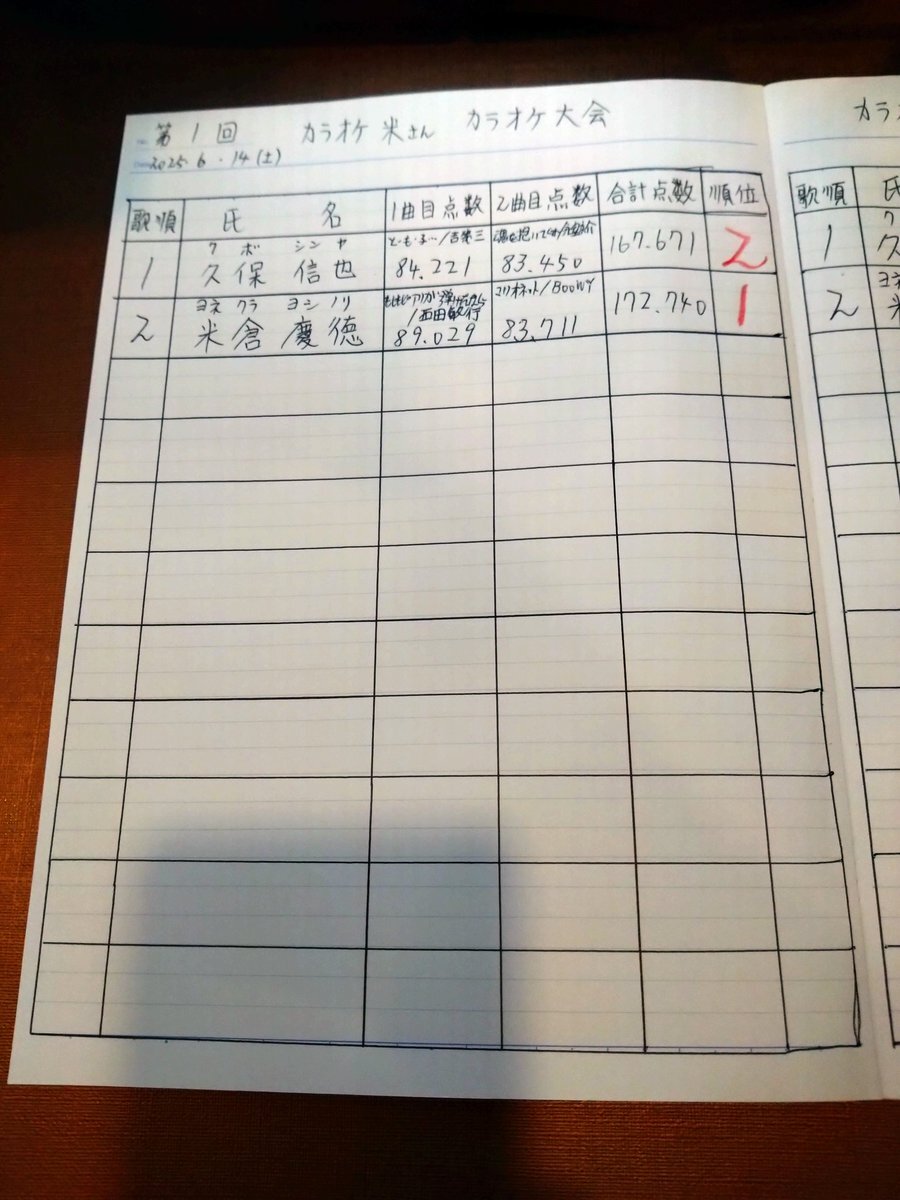 第1回 カラオケ米さん カラオケ大会
2025.6.14(土)
歌順 氏名 1曲目点数 2曲目点数 合計点数 順位
クボ シンヤ
と・も・子…/吉幾三
1 久保 信也 84.221 83.450 167.671 2
ヨネクラ ヨシノリ
もしもピアノが弾けたなら/西田敏行
マリオネット/BOOWY
2 米倉 慶徳 89.029 83.711 172.740 1
カラオ
歌順 氏
ク
1 久
ヨネ
2 米